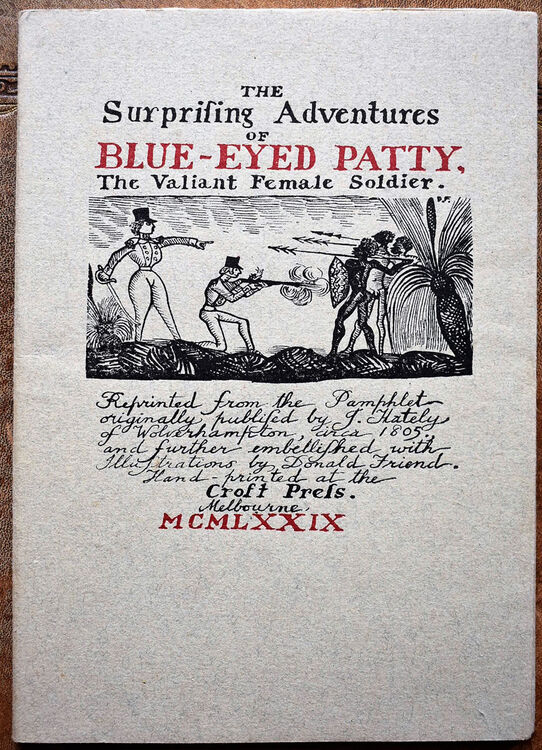 THE
Surpriſing Adventures
OF
BLUE-EYED PATTY,
The Valiant Female Soldier.
D.F.
Reprinted from the Pamphlet
originally publiſed by J. Hately
of Wolverhampton, circa 1805,
and further embelliſhed with
Illuſtrations by Donald Friend.
Hand-printed at the
Croft Preſs.
Melbourne.
MCMLXXIX